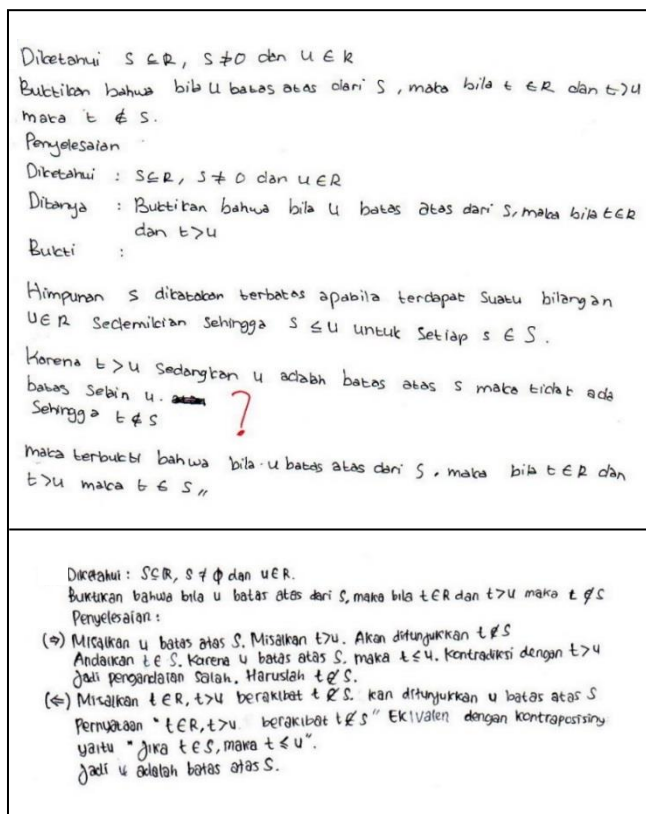 Diketahui S ⊆ R, S ≠ 0 dan u ∈ R
Buktikan bahwa bila U batas atas dari S, maka bila t ∈ R dan t > u
maka t ∉ S.
Penyelesaian
Diketahui : S ⊆ R, S ≠ 0 dan u ∈ R
Ditanya : Buktikan bahwa bila u batas atas dari S, maka bila t ∈ R
dan t > u
Bukti :
Himpunan S dikatakan terbatas apabila terdapat suatu bilangan
U ∈ R Sedemikian Sehingga s ≤ u untuk Setiap s ∈ S.
Karena t > u Sedangkan u adalah batas atas s maka tidak ada
batas Selain u.
Sehingga t ∉ S
?
maka terbukti bahwa bila u batas atas dari S, maka bila t ∈ R dan
t > u maka t ∈ S //
Diketahui : S ⊆ R, S ≠ ϕ dan u ∈ R.
Buktikan bahwa bila u batas atas dari S, maka bila t ∈ R dan t > u maka t ∉ S
Penyelesaian :
(⇒) Misalkan u batas atas S. Misalkan t > u. Akan ditunjukkan t ∉ S
Andaikan t ∈ S. Karena u batas atas S, maka t ≤ u. Kontradiksi dengan t > u
Jadi pengandaian Salah. Haruslah t ∉ S.
(⇐) Misalkan t ∈ R, t > u berakibat t ∉ S. kan ditunjukkan u batas atas S
Pernyataan "t ∈ R, t > u berakibat t ∉ S" Ekivalen dengan kontraposisiny
yaitu "Jika t ∈ S, maka t ≤ u".
Jadi u adalah batas atas S.